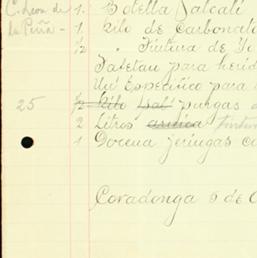 C. Leon de 1. Botella Salcali
la Piña - 1 kilo de Carbonato
1/2 " Tintura de Yo
Tafetan para herid
Un Especifico para
25 1/2 kilo Sal purgas
2 Litros arnica Tintur
1 Docena jeringas ca
Covadonga 6 de O